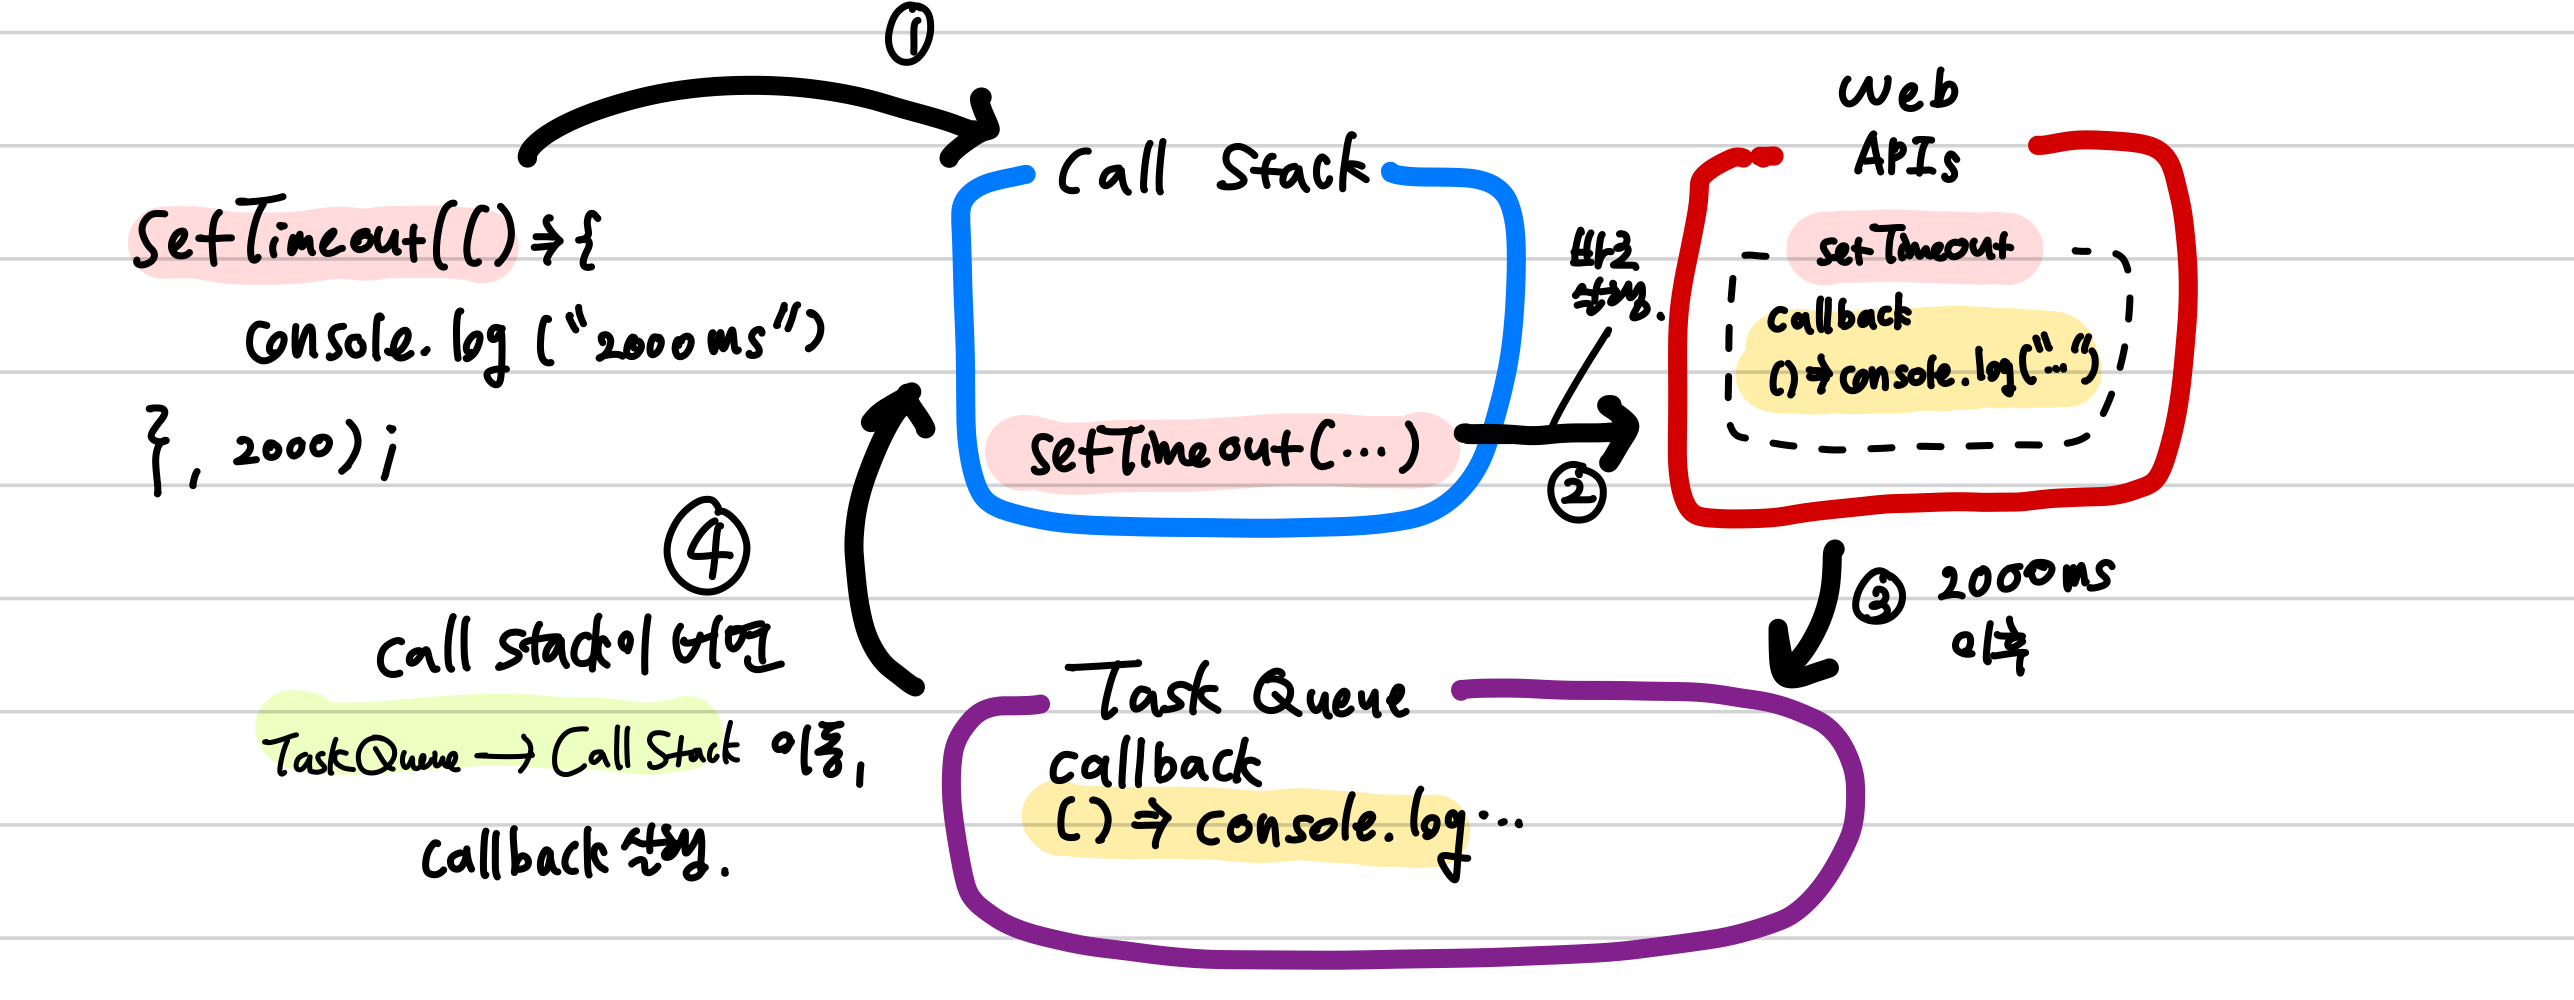 ①
setTimeout(() => {
console.log("2000ms")
}, 2000);
Call Stack
setTimeout(...)
바로
실행.
②
Web
APIs
setTimeout
callback
() => console.log("...")
③ 2000ms
이후
Task Queue
callback
() => console.log...
④
call stack이 비면
TaskQueue → Call Stack 이동,
callback 실행.